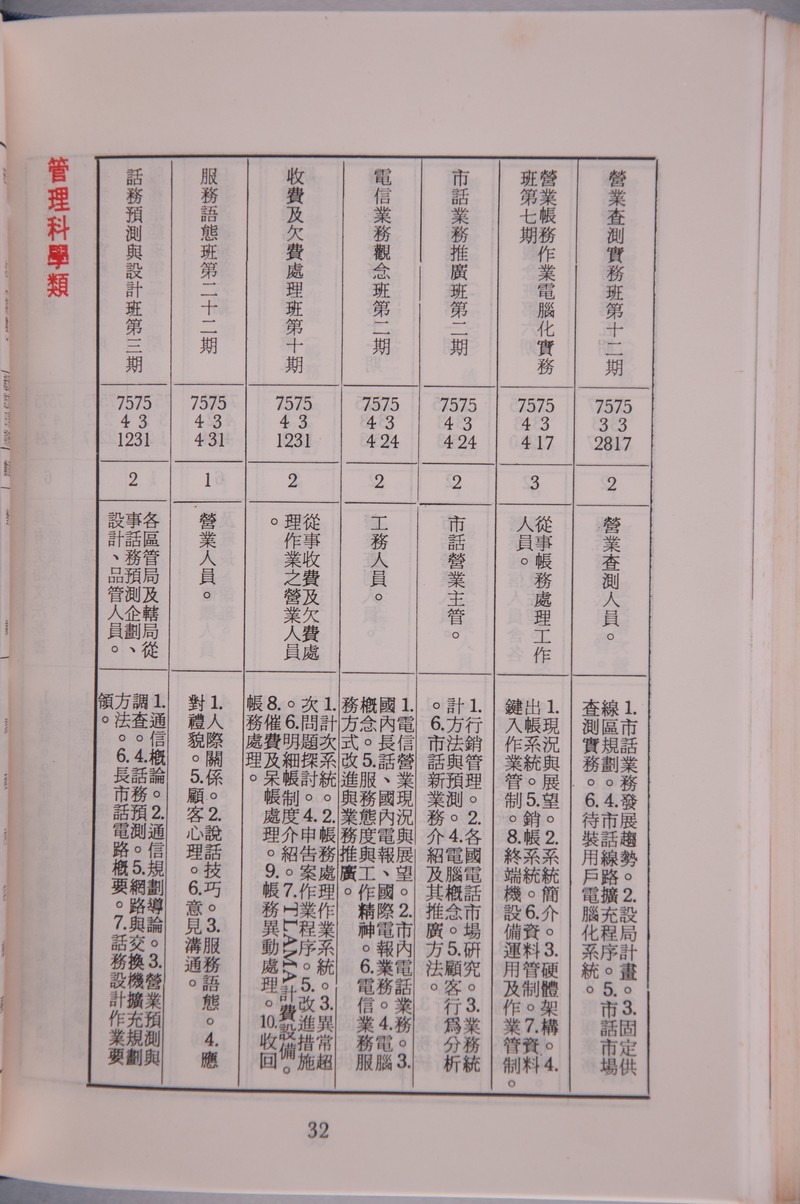 營業查測實務班第十二期
7575
3 3
2817
2
營業查測人員。
1.市話業務發展趨勢。2.設局計畫。3.固定供
線區規劃。4.市話線路擴充程序。5.市話市場
查測實務。6.待裝用戶電腦化系統。
營業帳務作業電腦化實務
班第七期
7575
4 3
4 17
3
從事帳務處理工作
人員。
1.現況與展望。2.系統簡介。3.硬體架構。4.
出帳系統。5.銷帳系統。6.資料管制。7.資料
鍵入作業管制。8.終端機設備運用及作業管制。
市話業務推廣班第二期
7575
4 3
4 24
2
市話營業主管。
1.行銷管理。2.各國電話市場研究。3.業務統
計方法與預測。4.電腦概念。5.顧客行爲分析
。6.市話新業務介紹及其推廣方法。
電信業務觀念班第二期
7575
4 3
4 24
2
工務人員。
1.電信營業現況與展望。2.市內電話業務。3.
國內長話、國內電報、國際電報業務。4.電腦
概念。5.服務態度與工作精神。6.電信業務服
務方式改進與業務推廣。
收費及欠費處理班第十期
7575
4 3
1231
2
從事收費及欠費處
理作業之營業人員
。
1.計次系統。2.帳務處理作業系統。3.異常超
次問題探討。4.申告案作業程序。5.改進措施
。6.明細帳制度介紹。7.TLAMA計費設備。
8.催費及呆帳處理。9.帳務異動處理。10.收回
帳務處理。
服務語態班第二十二期
7575
4 3
4 31
1
營業人員。
1.人際關係。2.說話技巧。3.服務語態。4.應
對禮貌。5.顧客心理。6.意見溝通。
話務預測與設計班第三期
7575
4 3
1231
2
各區管局及轄局從
事話務預測企劃、
設計、品管人員。
1.通信概論。2.通信規劃導論。3.營業預測與
調查。4.話務預測。5.網路與交換機擴充規劃
方法。6.長市話電路概要。7.話務設計作業要
領。
管理科學類
32